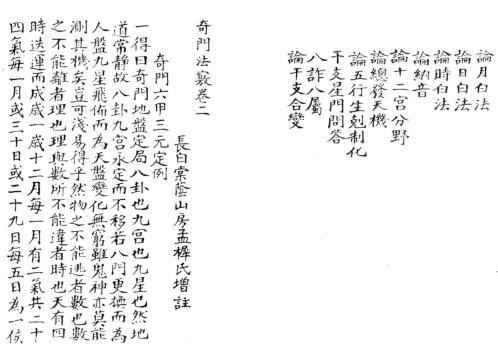 論月白法
論日白法
論時白法
論納音
論十二宮分野
論總發天機
論五行生剋制化
干支星門問答
八詐八屬
論干支合變
奇門法竅卷二
長白棠蔭山房孟樨氏增註
奇門六甲三元定例
一得曰奇門地盤定局八卦也九宮也九星也然地
道常靜故八卦九宮永定而不移若八門更換而為
人盤九星飛佈而為天盤變化無窮雖鬼神亦莫能
測其機矣豈可淺易得乎然物之不能逃者數也數
之不能離者理也理與數所不能違者時也天有四
時迭運而成歲一歲十二月每一月有二氣共二十
四氣每一月或三十日或二十九日每五日為一候